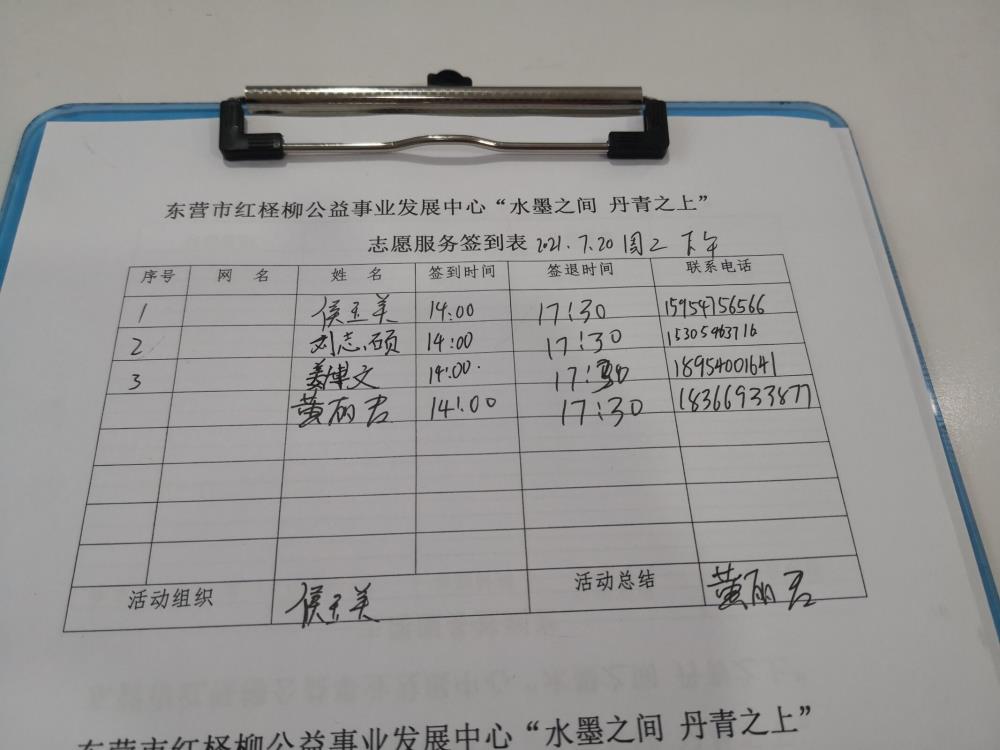 东营市红柽柳公益事业发展中心“水墨之间 丹青之上”
志愿服务签到表 2021.7.20 周二 下午
序号 网 名 姓 名 签到时间 签退时间 联系电话
1 侯玉美 14:00 17:30 15954756566
2 刘志硕 14:00 17:30
3 姜博文 14:00. 17:30 18954001641
黄丽君 14:00 17:30 18366933877
活动组织 侯玉美 活动总结 黄丽君
东营市红柽柳公益事业发展中心“水墨之间 丹青之上”